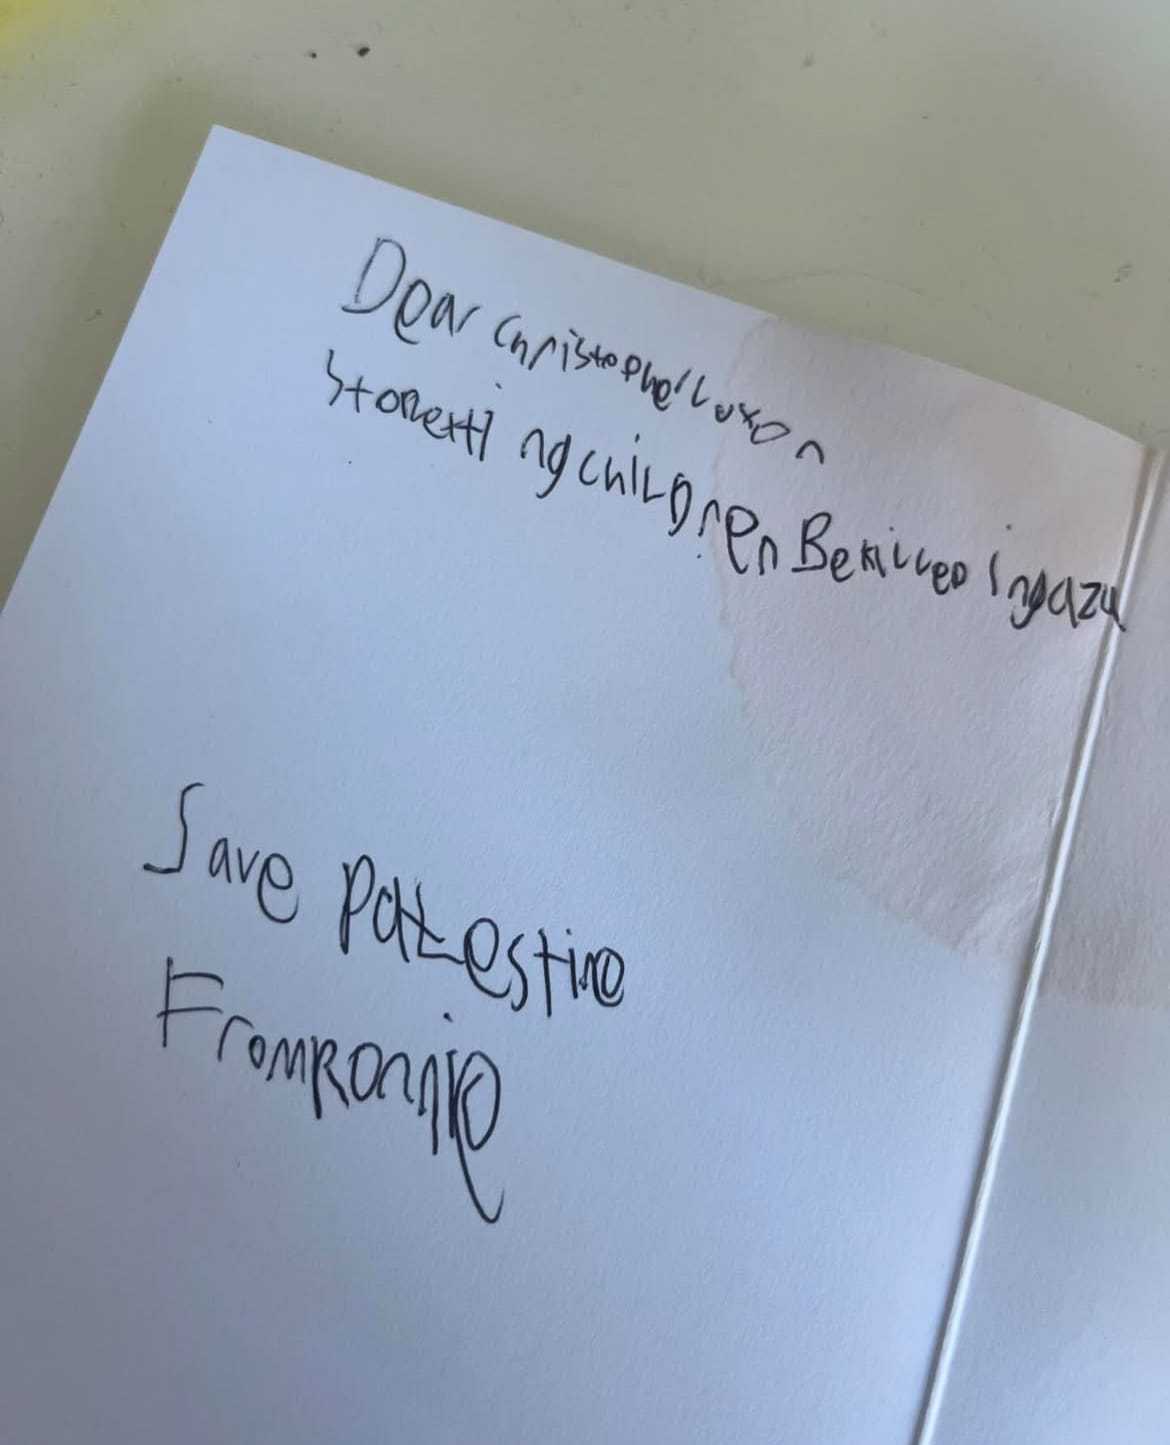 Dear Christopher Luxon
Stop letting children Be killed in gaza
Save Palestine
From Ronnie